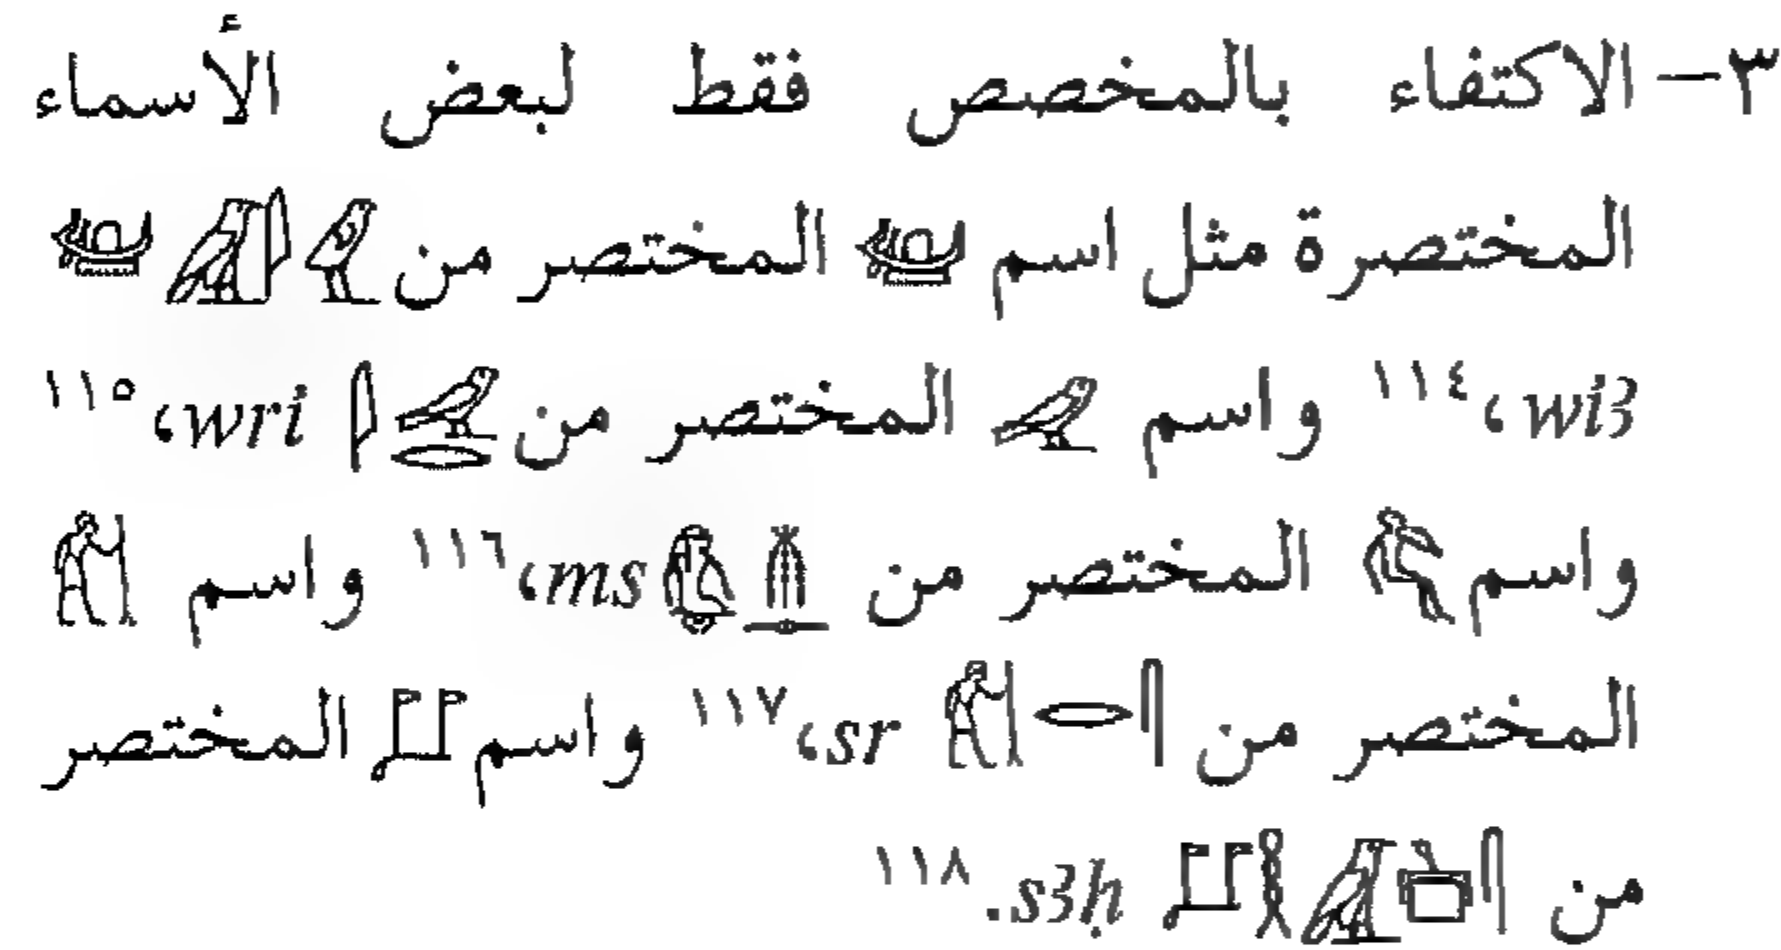 ٣- الاكتفاء بالمخصص فقط لبعض الأسماء
المختصرة مثل اسم 𓊞 المختصر من 𓅱𓇋𓄿𓊞
wi3،١١٤ واسم 𓅨 المختصر من 𓅨𓂋𓇋 wri،١١٥
واسم المختصر من 𓄟 ms،١١٦ واسم 𓀙
المختصر من 𓋴𓂋𓀙 sr،١١٧ واسم المختصر
من s3ḥ.١١٨